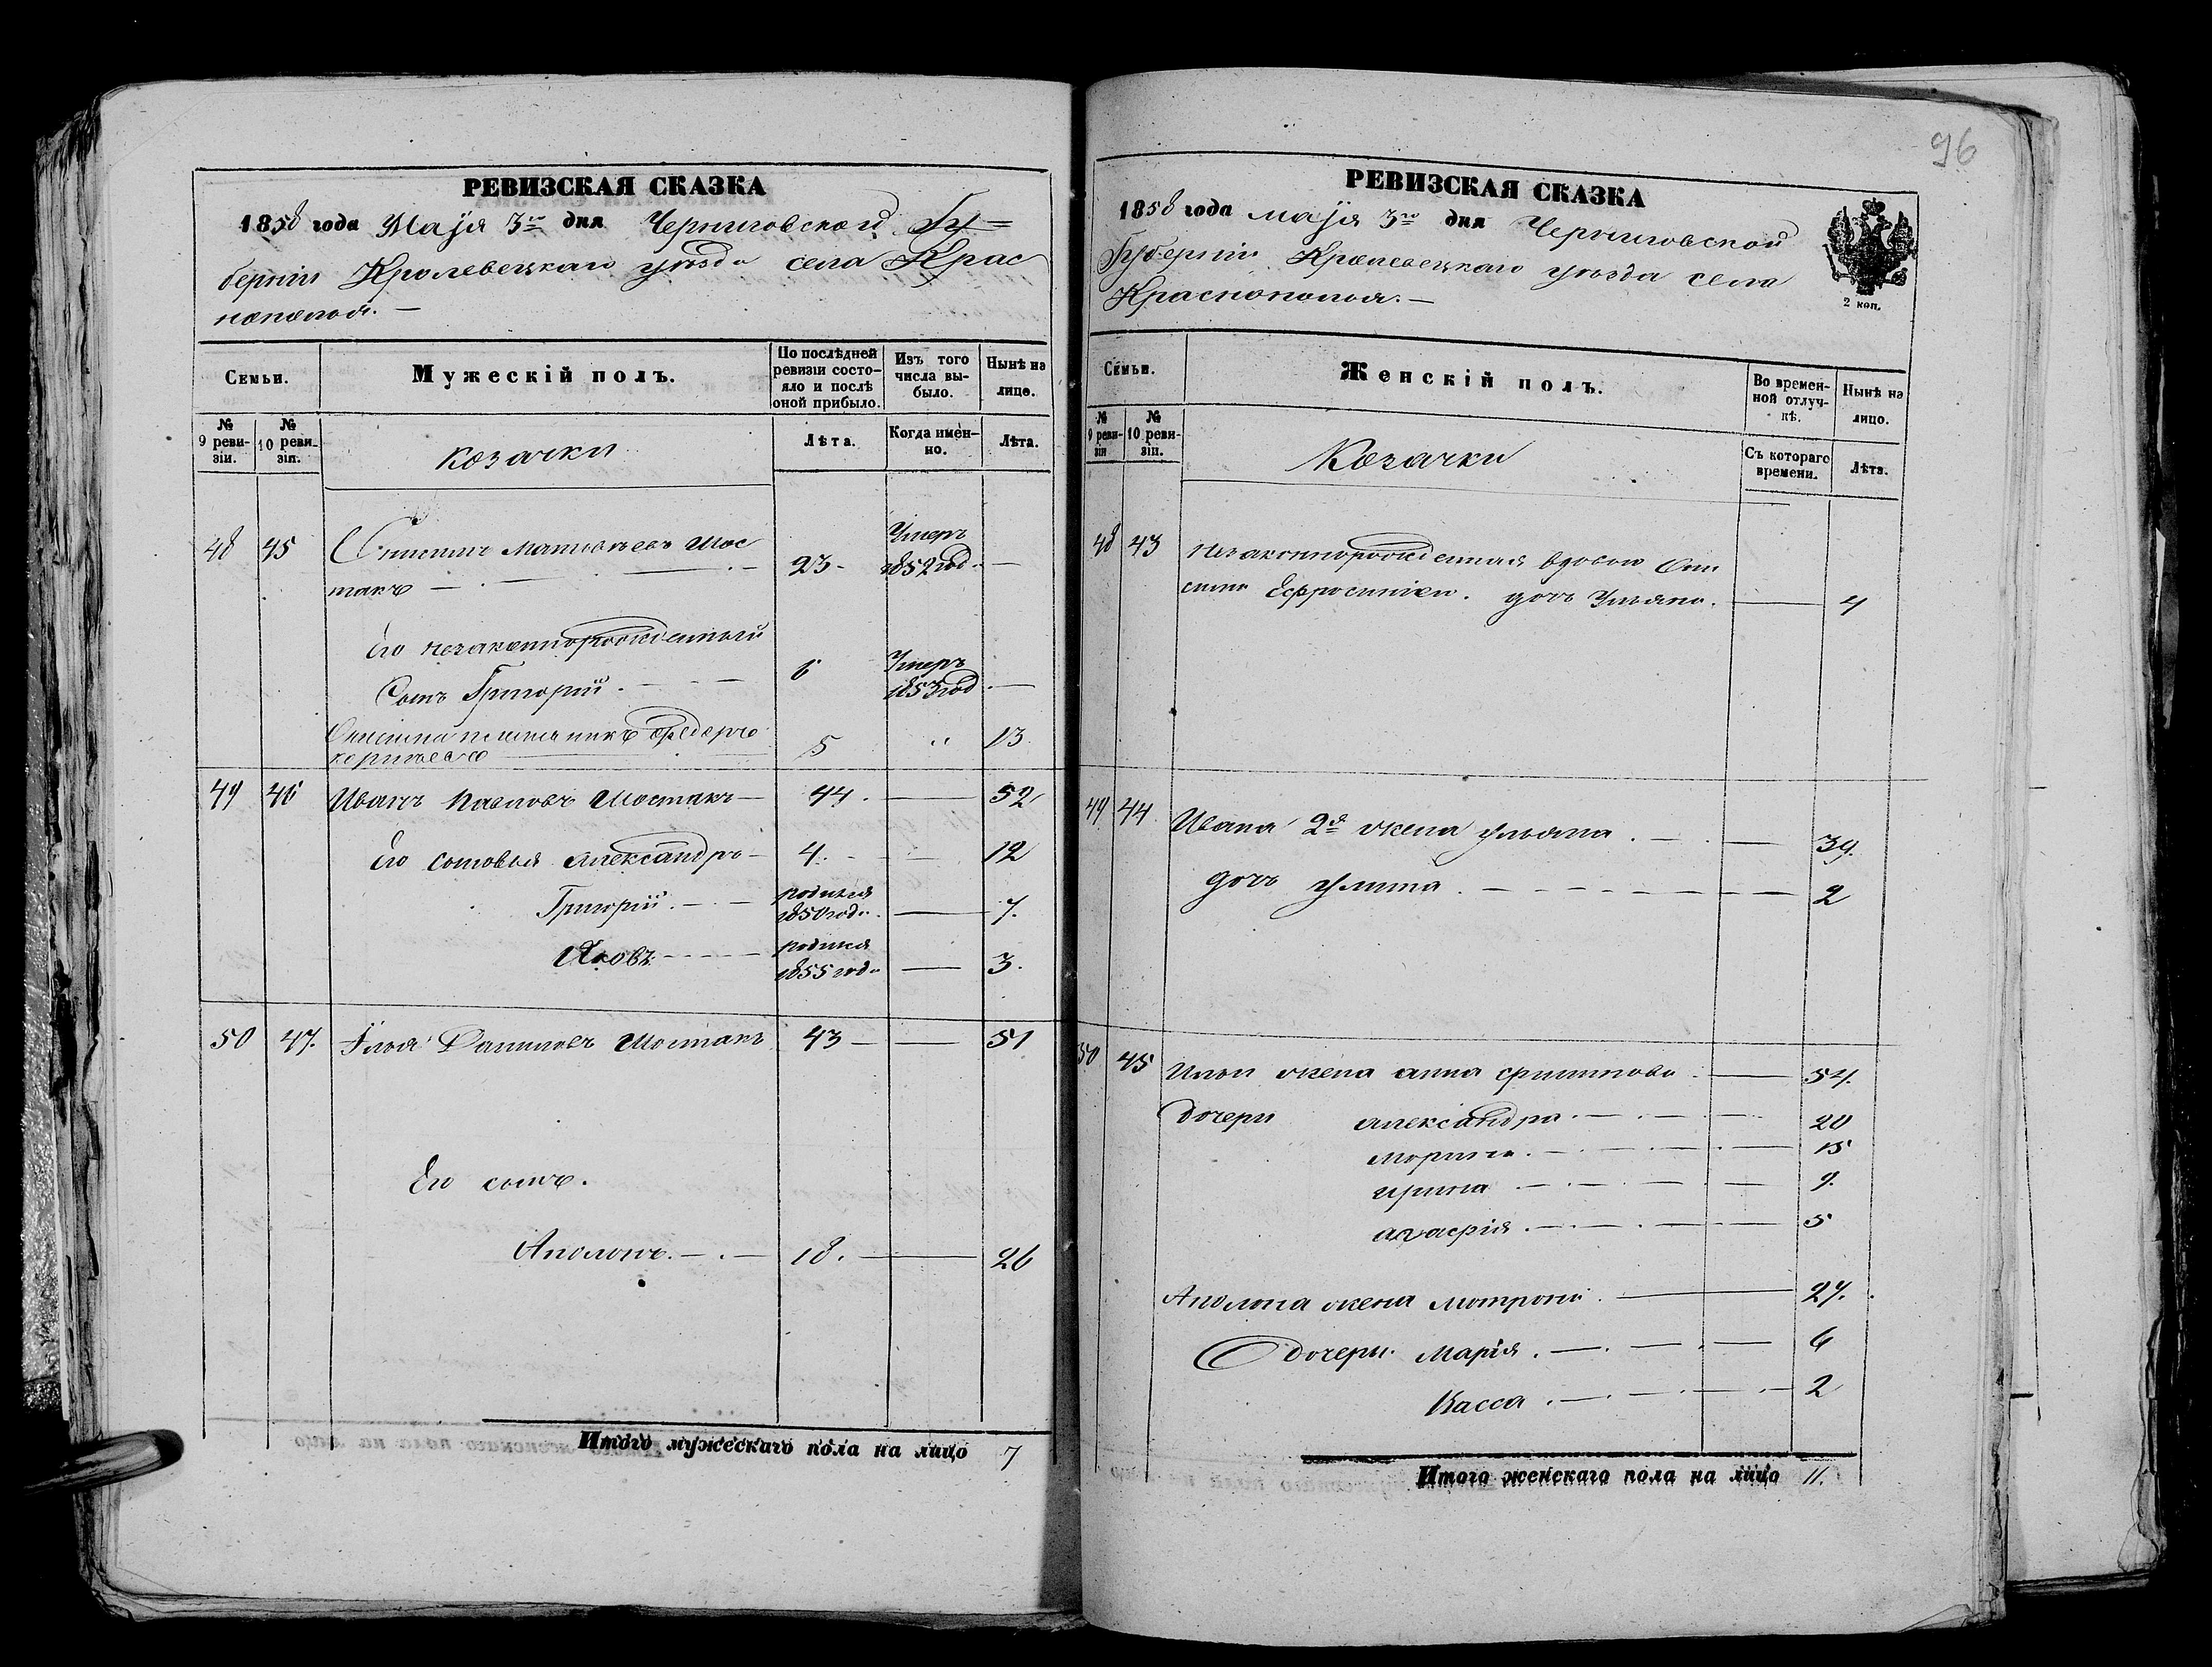 96
РЕВИЗСКАЯ СКАЗКА
1858 года Маія 3го дня Черниговской Гу=
берніи Кролевецкаго уѣзда села Крас
нополья. —
Семьи.
Мужескій полъ.
По послѣдней ревизіи состояло и послѣ оной прибыло.
Изъ того числа выбыло.
Нынѣ на лице.
№ 9 ревизіи.
№ 10 ревизіи.
козачки
Лѣта.
Когда именно.
Лѣта.
48 45 Онисимъ Матвѣевъ Шос 23 Умеръ 1852 год. —
такъ —
Его незаконнорожденный
Сынъ Григорій. — 6 Умеръ 1853 год —
Онисима племянникъ 5 " 13
49 46 Иванъ Павловъ Шостакъ — 44. — 52
Его сыновья Александръ — 4. — 12
Григорій. — родился 1850 года. — 7.
Яковъ. — родился 1855 года — 3.
50 47. Ілья Даниловъ Шостакъ 43 — — 51
Его сынъ.
Аполонъ. — 18. — 26
Итого мужескаго пола на лицо 7
РЕВИЗСКАЯ СКАЗКА
1858 года маія 3го дня Черниговской
Губерніи Кролевецкаго уѣзда села
Краснополья. —
2 коп.
Семьи.
Женскій полъ.
Во временной отлучкѣ.
Нынѣ на лицо.
№ 9 ревизіи
№ 10 ревизіи.
Козачки
Съ котораго времени.
Лѣта.
48 43 Незаконнорожденная вдовою Они
сима Ефросиніею. дочь Ульяна. — 4
49 44 Ивана 2я жена Ульяна. — 39.
дочь Улита. — 2
50 45 Ильи жена анна — 54.
дочери александра. — 20
Марина. — 15
ирина — 9.
агафія. — 5
Аполона жена Мотрона. — 27.
дочери. Марія. — 6
Васса. — 2
Итого женскаго пола на лицо 11.